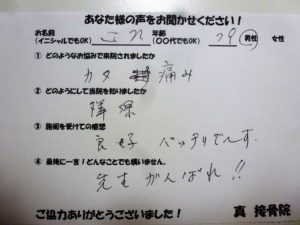 あなた様の声をお聞かせください！
お名前 年齢
(イニシャルでもOK) (○○代でもOK) 79 男性 女性
① どのようなお悩みで来院されましたか
カタ 痛み
② どのようにして当院を知りましたか
③ 施術を受けての感想
良好 バッチリでんす
④ 最後に一言！どんなことでも構いません。
先生がんばれ!!
ご協力ありがとうございました！ 真 接骨院